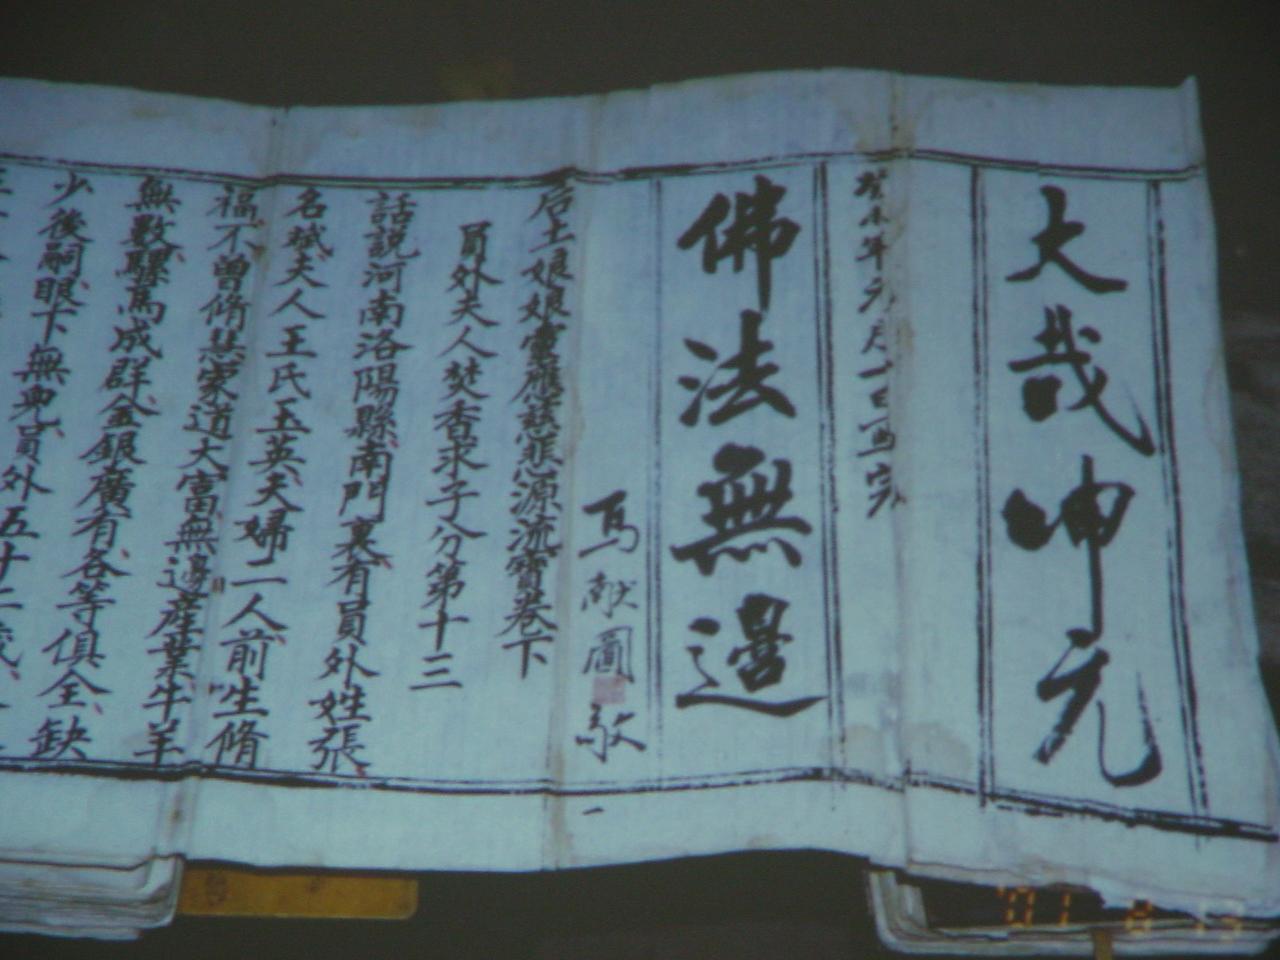 大哉坤元
癸未年元月一日
佛法無邊
馬献圖敬
一
后土娘娘靈應慈悲源流寶卷下
員外夫人焚香求子分第十三
話說河南洛陽縣南門裏有員外姓張
名斌夫人王氏玉英夫婦二人前生脩
福不曾脩慧家道大富無邊産業牛羊
無數騾馬成群金銀廣有各等俱全缺
少後嗣眼下無児員外五十二歲
'01 13